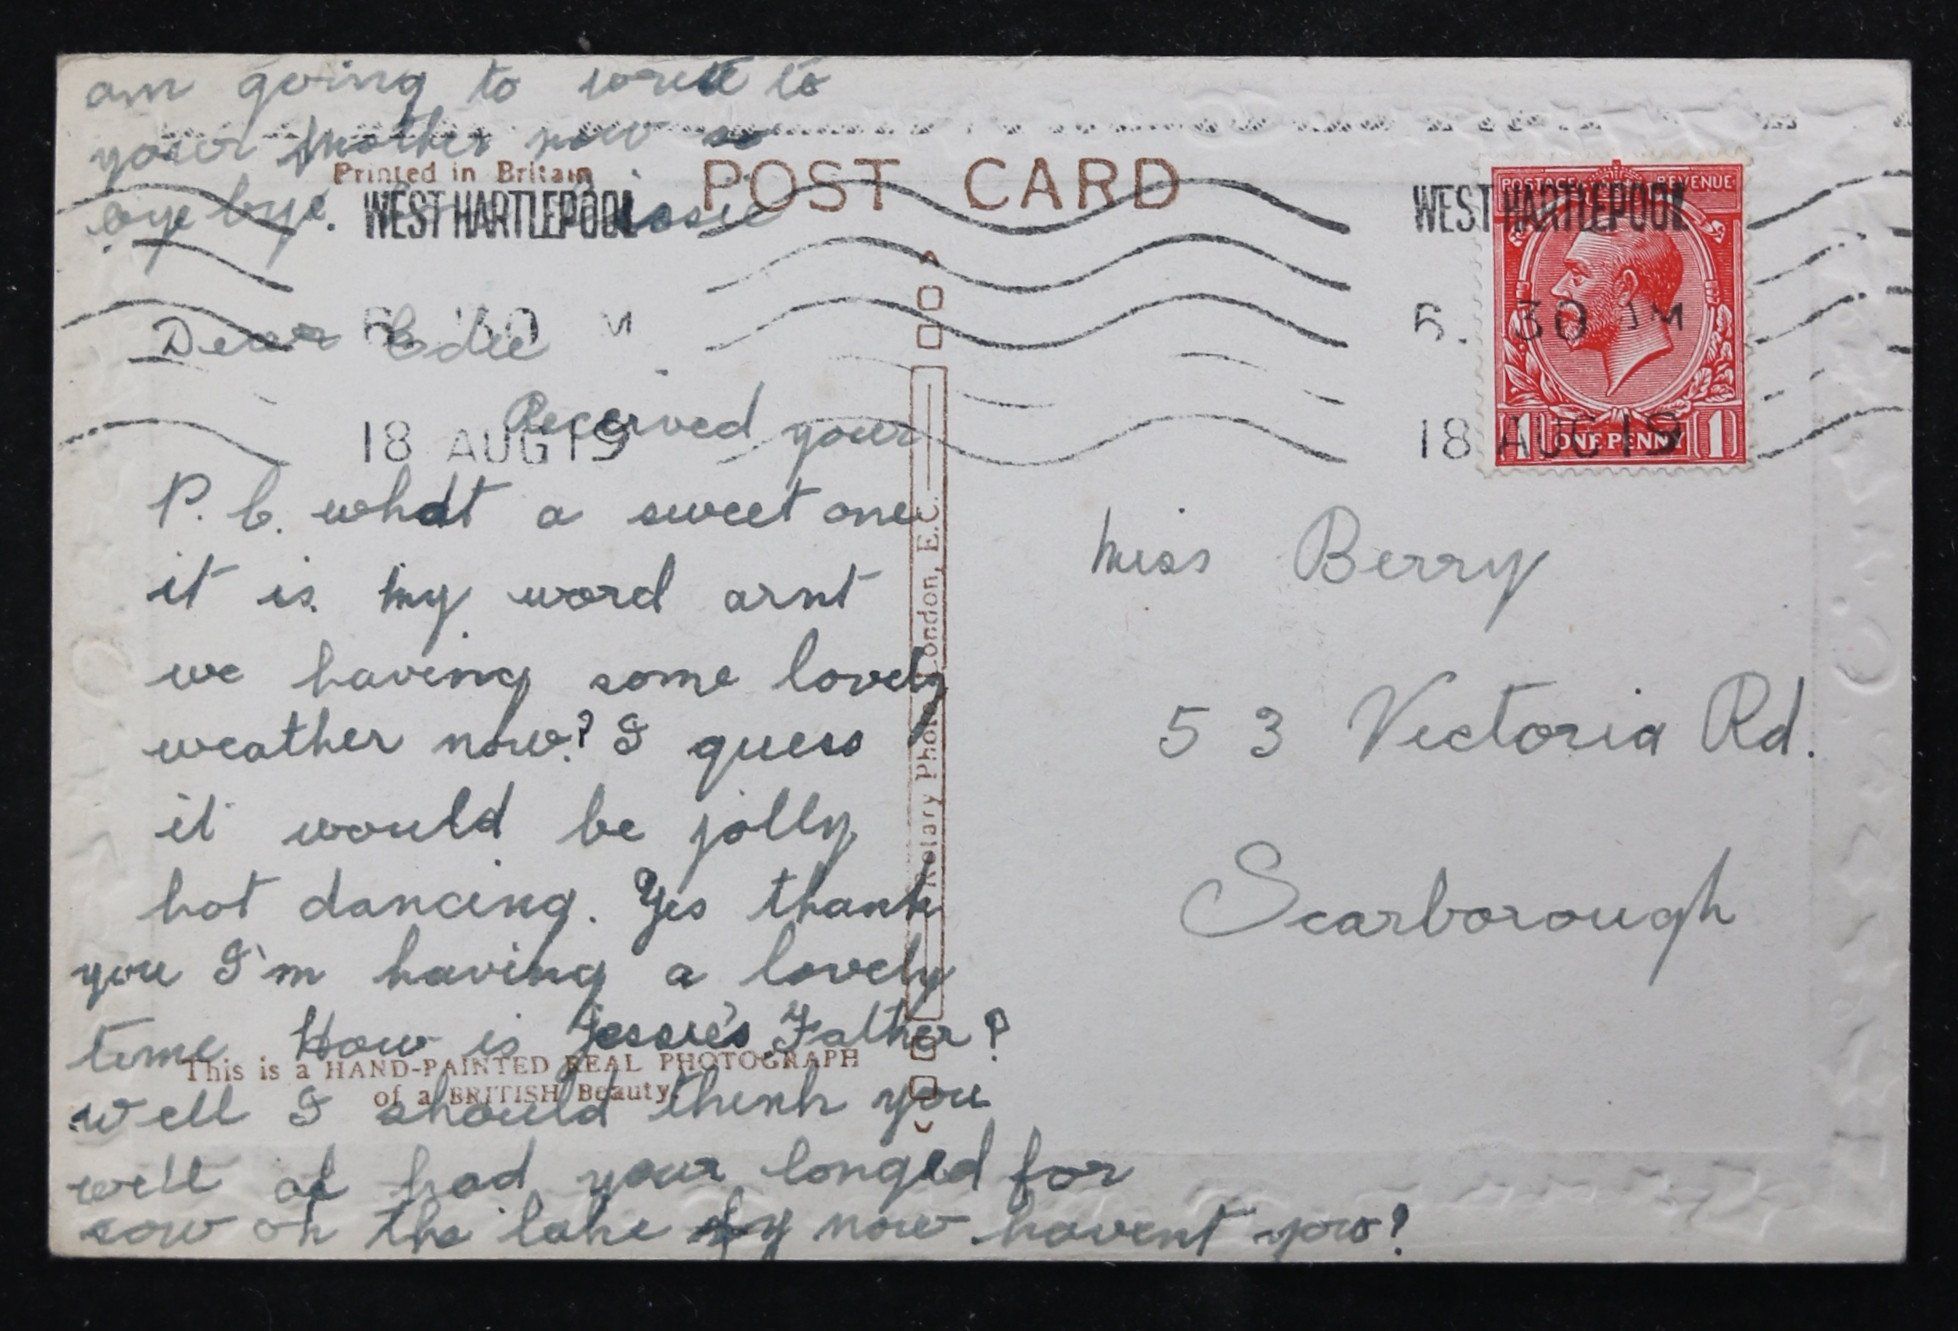 am going to write to
your Mother now so
bye bye. Jossie
Printed in Britain
POST CARD
WEST HARTLEPOOL
6. 30 M
18 AUG 19
WEST HARTLEPOOL
6. 30 M
18 AUG 19
POSTAGE REVENUE
1 ONE PENNY 1
Dear Edie
Received your
P.C. what a sweet one
it is. My word arnt
we having some lovely
weather now? I guess
it would be jolly
hot dancing. Yes thank
you I'm having a lovely
time How is Jessie's Father?
well I should think you
will of had your longed for
row on the lake by now havent you?
This is a HAND-PAINTED REAL PHOTOGRAPH
of a BRITISH Beauty.
Rotary Photo, London, E.C.
Miss Berry
53 Victoria Rd.
Scarborough